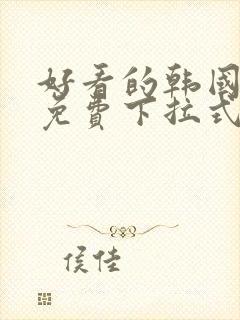 好看的韩国
免费下拉式
侯佳